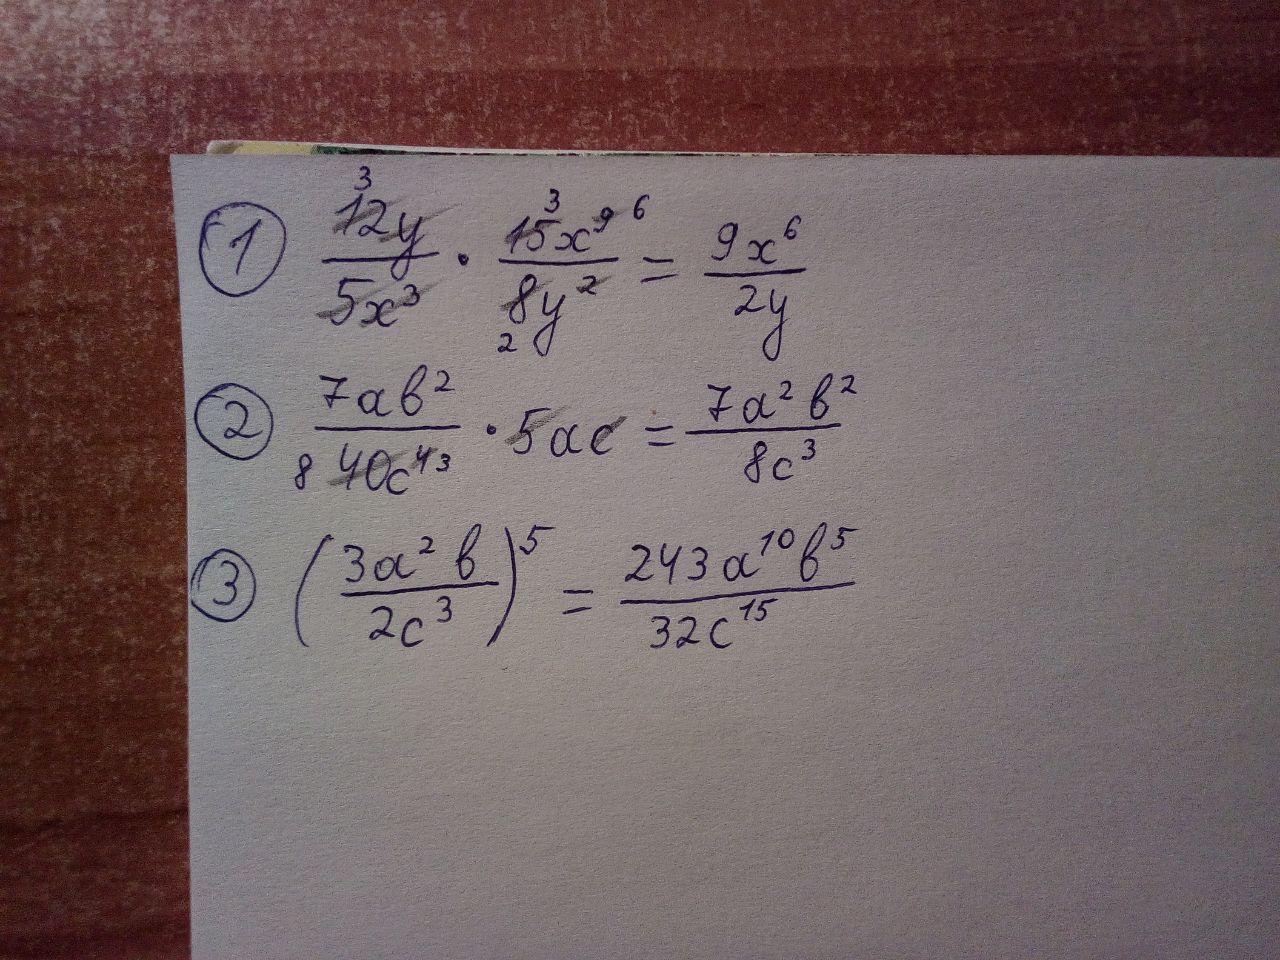 ① 12y/5x³ · 15x⁹/8y² = 9x⁶/2y
② 7ab²/40c⁴ · 5ac = 7a²b²/8c³
③ (3a²b/2c³)⁵ = 243a¹⁰b⁵/32c¹⁵